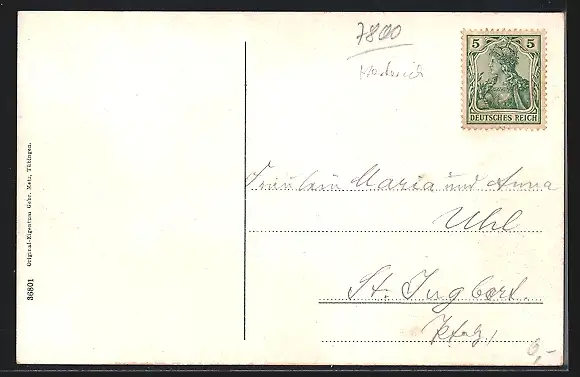 7800
5 5
DEUTSCHES REICH
Fräulein Maria und Anna
Uhl
St. Ingbert.
Pfalz,
6,-
Original-Eigentum Gebr. Metz, Tübingen.
36801